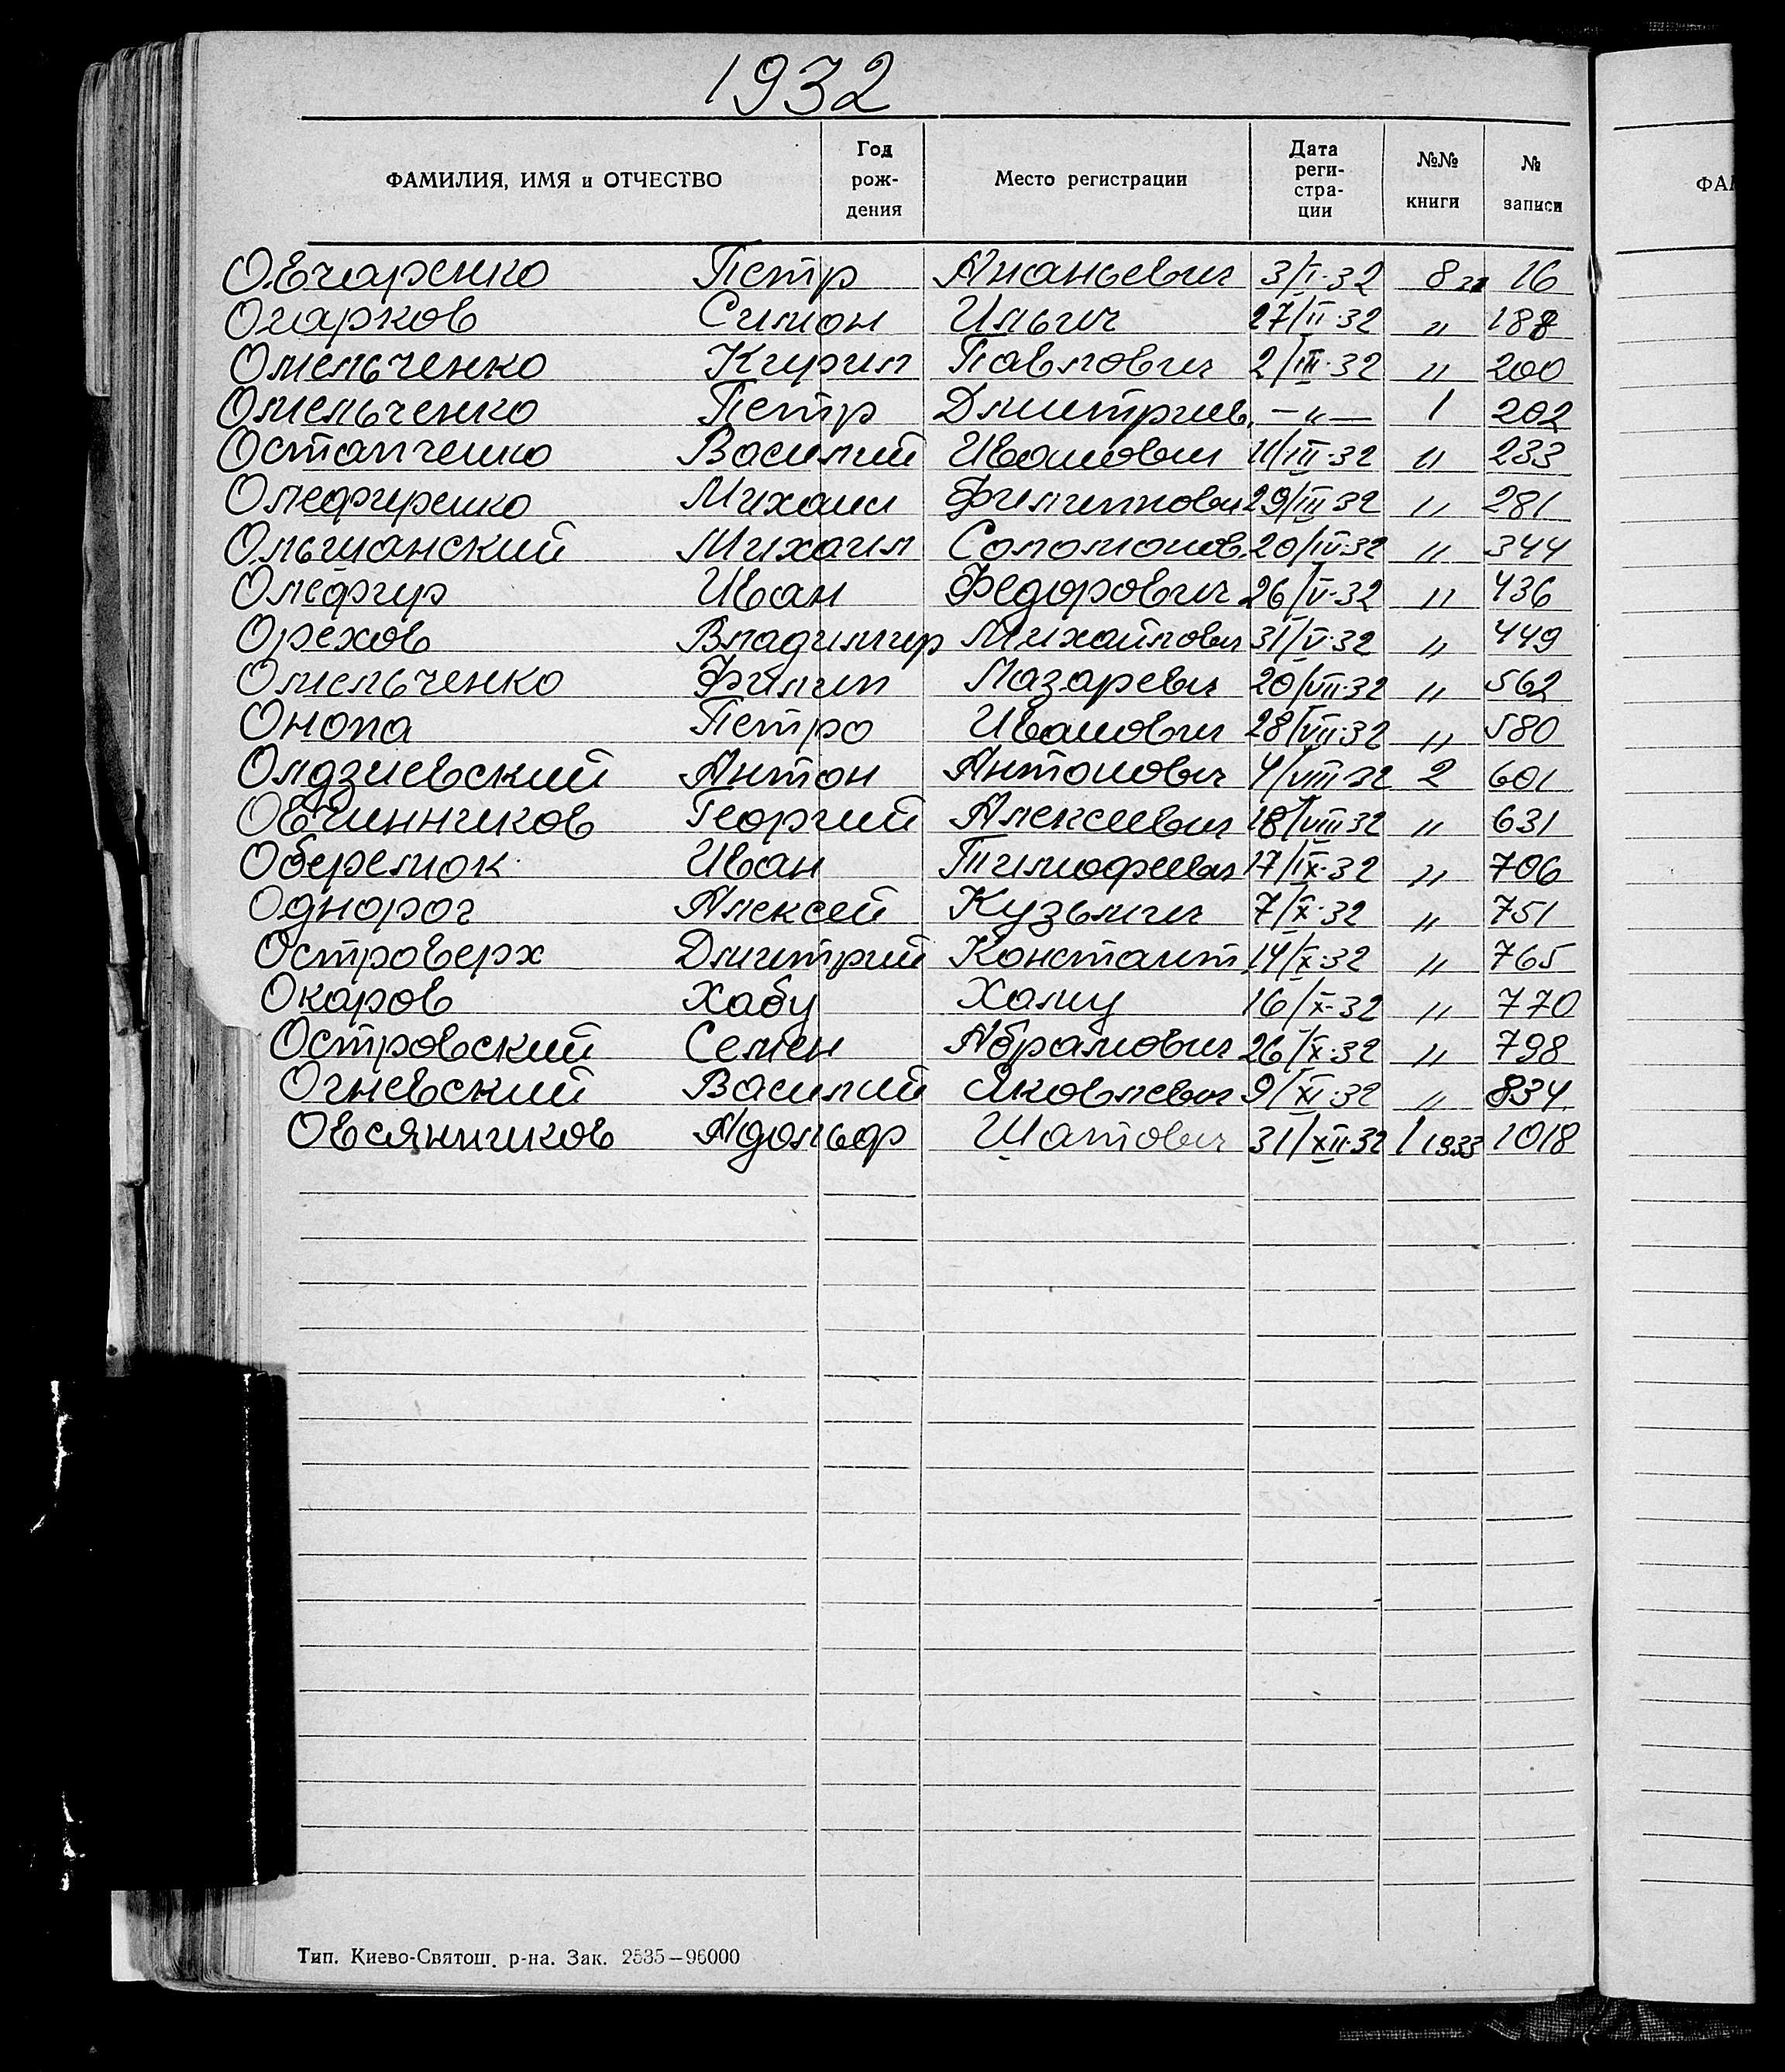 1932
ФАМИЛИЯ, ИМЯ и ОТЧЕСТВО Год рож- дения Место регистрации Дата реги- стра- ции №№ книги № записи
ФА
Овчаренко Петр Ананьевич 3/I-32 8 16
Огарков Симон Ильич 27/II-32 " 188
Омельченко Кирил Павлович 2/III-32 " 200
Омельченко Петр Дмитриев. —"— 1 202
Остапченко Василий Иванович 11/III-32 " 233
Олефиренко Михаил Филиппович 29/III-32 " 281
Ольшанский Михаил Соломонов. 20/IV-32 " 344
Олефир Иван Федорович 26/V-32 " 436
Орехов Владимир Михайлович 31/V-32 " 449
Омельченко Филип Лазаревич 20/VII-32 " 562
Онопа Петро Иванович 28/VII-32 " 580
Олдзиевский Антон Антонович 4/VIII-32 2 601
Овчинников Георгий Алексеевич 18/VIII-32 " 631
Оберемок Иван Тимофеевич 17/IX-32 " 706
Однорог Алексей Кузьмич 7/X-32 " 751
Островерх Дмитрий Константин 14/X-32 " 765
Окаров Хабу Хаму 16/X-32 " 770
Островский Семен Абрамович 26/X-32 " 798
Огневский Василий Яковлевич 9/XI-32 " 834.
Овсянников Адольф Шатович 31/XII-32 1 1933 1018
Тип. Киево-Святош. р-на. Зак. 2535—96000